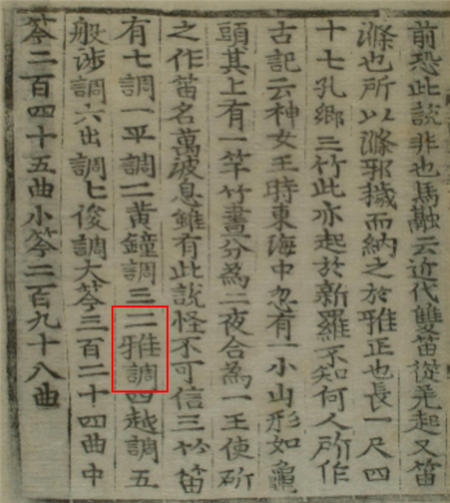 前恐此說非也馬融云近代雙笛從羌起又笛
滌也所以滌邪穢而納之於雅正也長一尺四
十七孔鄉三竹此亦起於新羅不知何人所作
古記云神女王時東海中忽有一小山形如龜
頭其上有一竿竹晝分為二夜合為一王使斫
之作笛名萬波息雖有此說怪不可信三竹笛
有七調一平調二黃鐘調三二雅調四越調五
般涉調六出調七俊調大笒三百二十四曲中
笒二百四十五曲小笒二百九十八曲